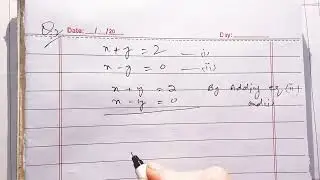 Q2 Date: / /20 Day:
x + y = 2 — (i)
x - y = 0 — (ii)
x + y = 2 By Adding eq (i)
x - y = 0 and (ii)